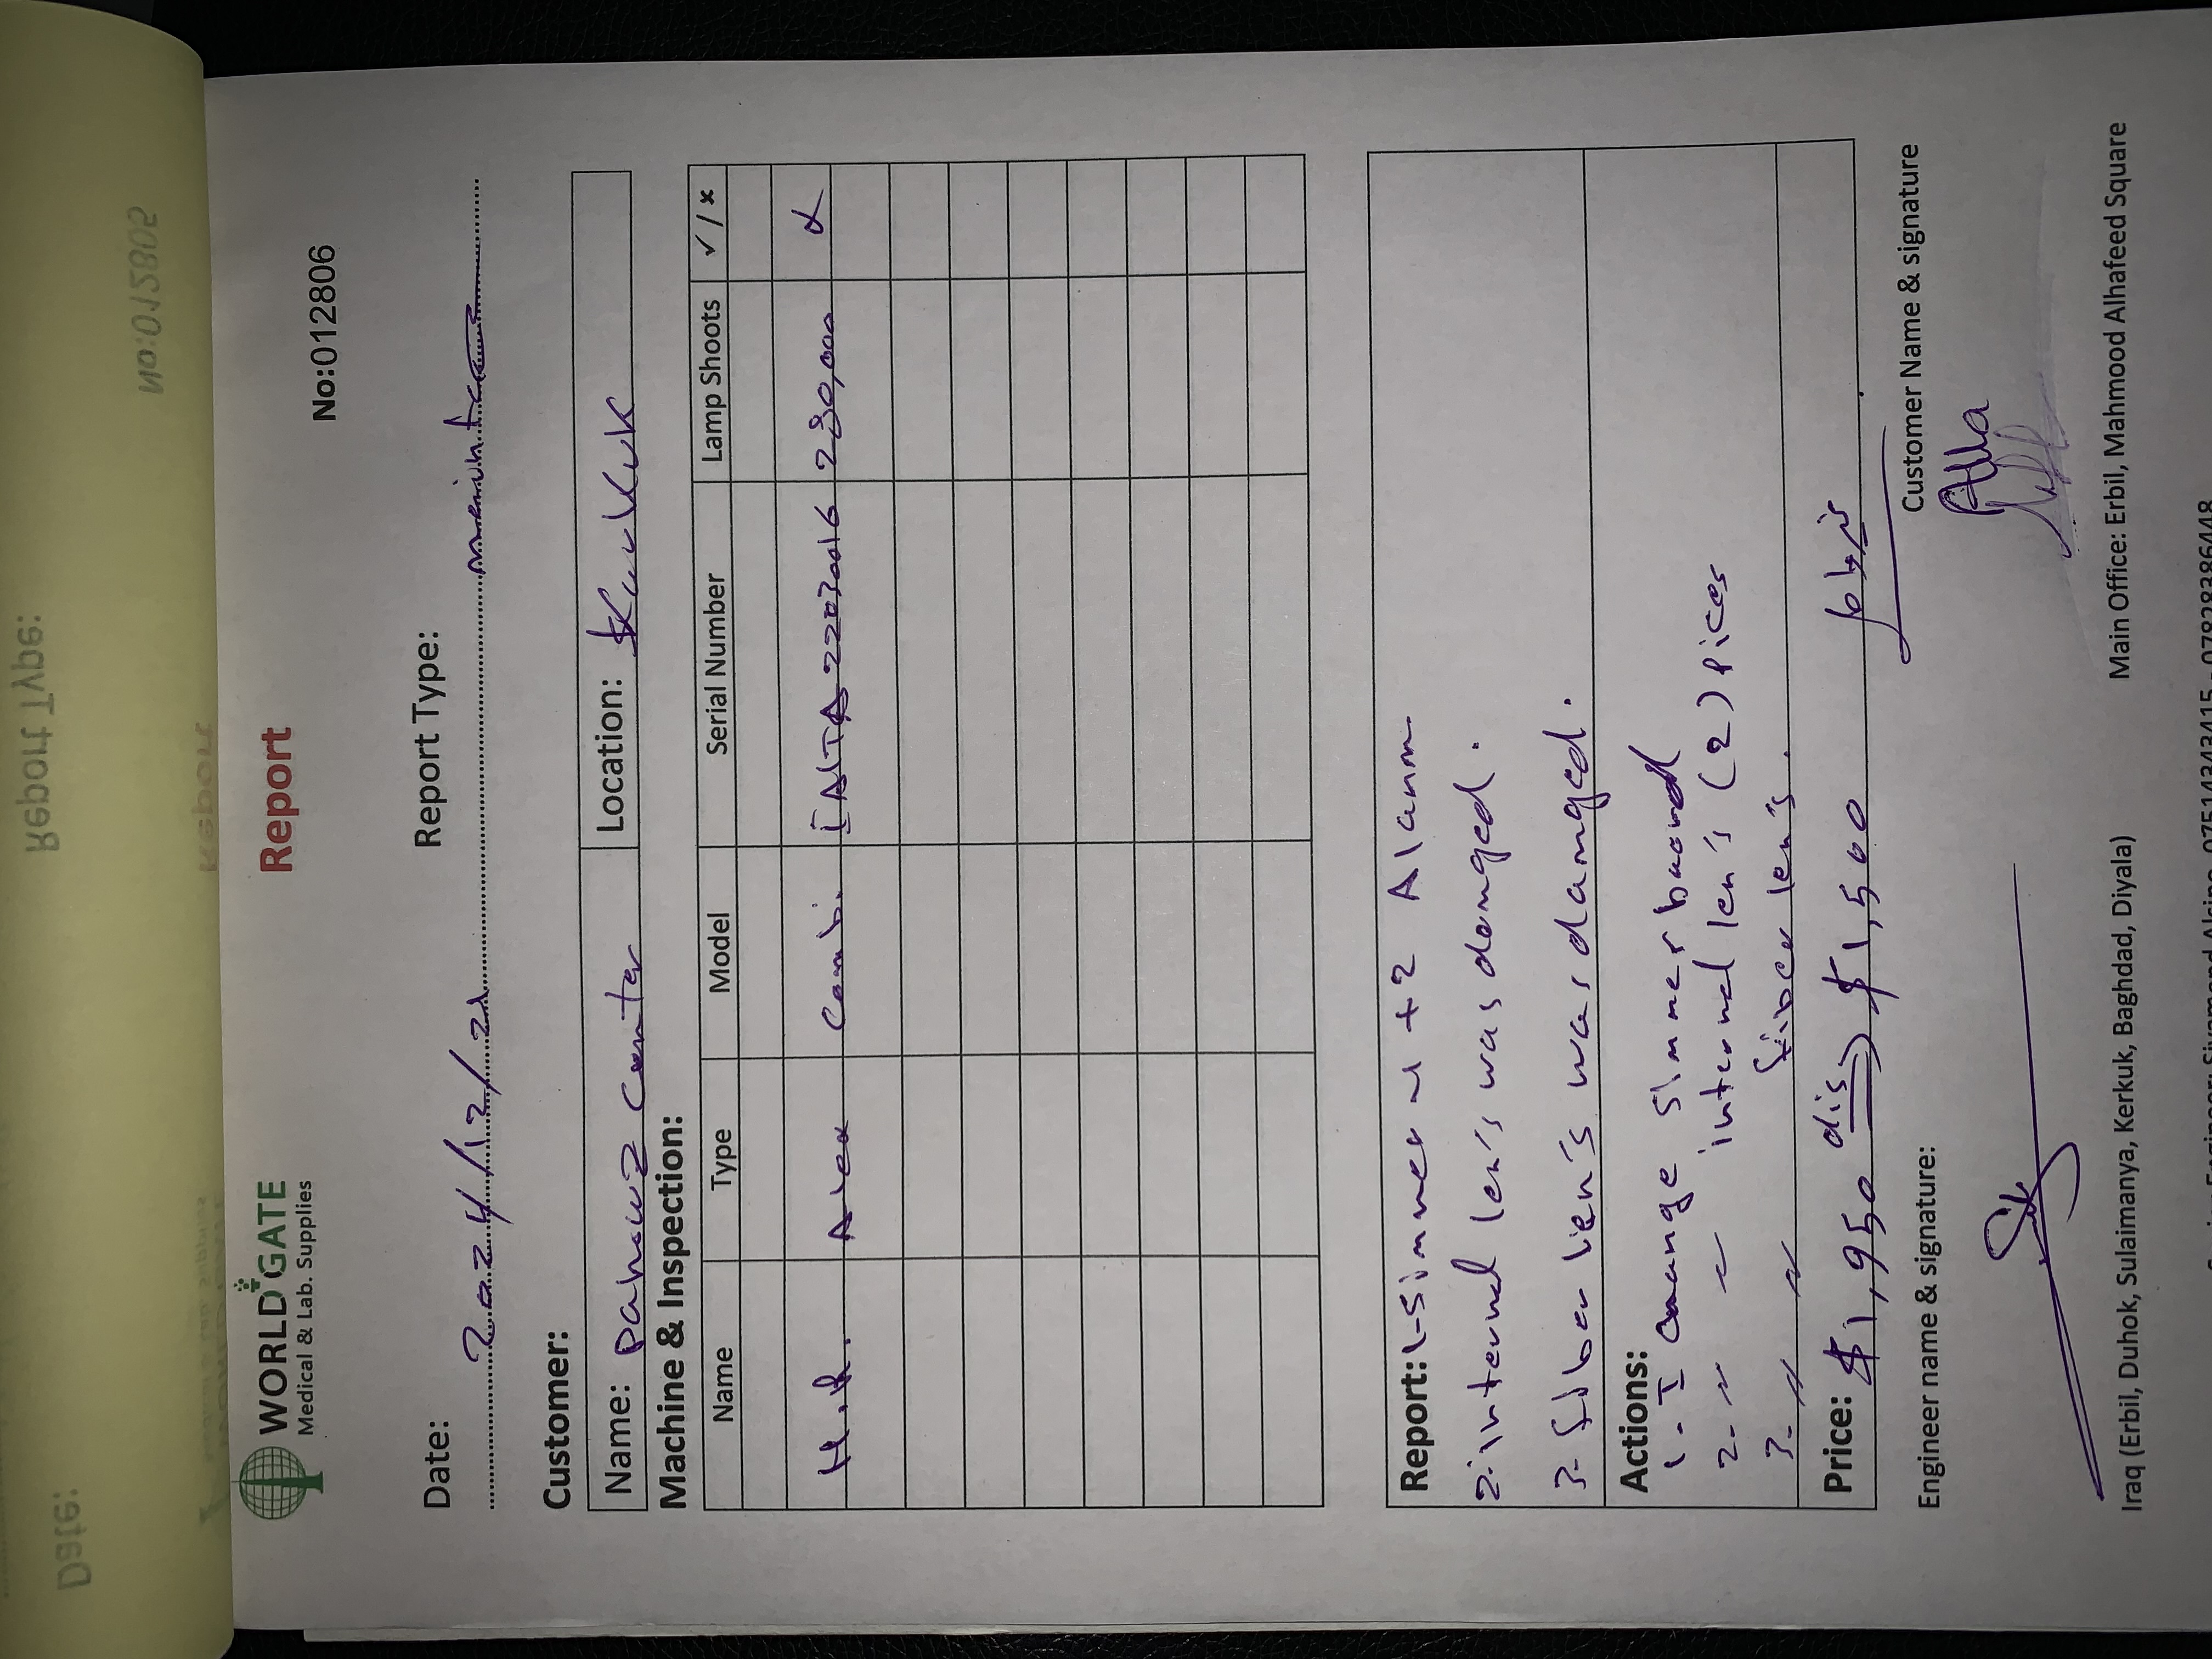 WORLD GATE
Medical & Lab. Supplies
Report
No:012806
Date: 2024/12/21
Report Type:
Customer:
Name: Pahowz Center
Location: Karkuk
Machine & Inspection:
Name Type Model Serial Number Lamp Shoots ✓/×
H.R. Alex Combi. 230,000
Report: 1-Simmer +2 Alarm
2-internal len's was damged.
3- was damged.
Actions:
1-I change simmer
2- 〃 〃 internal len's (2) Pices
3- 〃 〃 fiber len's.
Price: $1,950 dis $1,500
Engineer name & signature:
Customer Name & signature
Iraq (Erbil, Duhok, Sulaimanya, Kerkuk, Baghdad, Diyala)
Main Office: Erbil, Mahmood Alhafeed Square
Report Type:
Date:
No:012805